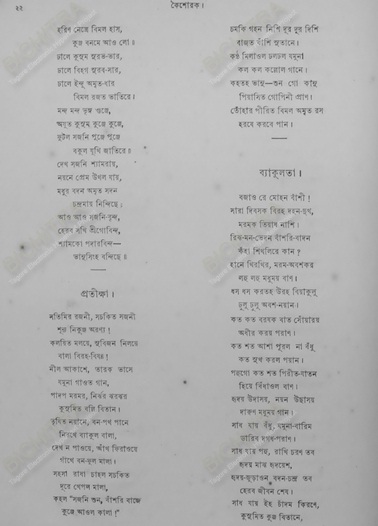 ২২
কৈশোরক।
হরিণ নেত্রে বিমল হাস,
কুঞ্জ বনমে আও লো॥
ঢালে কুসুম সুরভ-ভার,
ঢালে বিহগ সুরব-সার,
ঢালে ইন্দু অমৃত-ধার
বিমল রজত ভাতিরে।
মন্দ মন্দ ভৃঙ্গ গুঞ্জে,
অযুত কুসুম কুঞ্জে কুঞ্জে,
ফুটল সজনি পুঞ্জে পুঞ্জে
বকুল যূথি জাতিরে॥
দেখ সজনি শ্যামরায়,
নয়নে প্রেম উথল যায়,
মধুর বদন অমৃত সদন
চন্দ্রমায় নিন্দিছে;
আও আও সজনি-বৃন্দ,
হেরব সখি শ্রীগোবিন্দ,
শ্যামকো পদারবিন্দ—
ভানুসিংহ বন্দিছে॥
প্রতীক্ষা।
সতিমির রজনী, সচকিত সজনী
শূন্য নিকুঞ্জ অরণ্য।
কলয়িত মলয়ে, সুবিজন নিলয়ে
বালা বিরহ-বিষণ্ণ!
নীল আকাশে, তারক ভাসে
যমুনা গাওত গান,
পাদপ মরমর, নির্ঝর ঝরঝর
কুসুমিত বল্লি বিতান।
তৃষিত নয়ানে, বন-পথ পানে
নিরখে ব্যাকুল বালা,
দেখ ন পাওয়ে, আঁখ ফিরাওয়ে
গাঁথে বন-ফুল মালা।
সহসা রাধা চাহল সচকিত
দূরে খেপল মালা,
কহল "সজনি শুন, বাঁশরি বাজে
কুঞ্জে আওল কালা!"
চমকি গহন নিশি দূর দূর দিশি
বাজত বাঁশি সুতানে।
কণ্ঠ মিলাওল ঢলঢল যমুনা
কল কল কল্লোল গানে।
কহতহ ভানু—শুন গো কানু
পিয়াসিত গোপিনী প্রাণ।
তোঁহার পীরিত বিমল অমৃত রস
হরষে করবে পান।
ব্যাকুলতা।
বজাও রে মোহন বাঁশী!
সারা দিবসক বিরহ দহন-দুখ,
মরমক তিয়াষ নাশি।
রিঝ-মন-ভেদন বাঁশরি-বাদন
কঁহা শিখলিরে কান?
হানে থিরথির, মরম-অবশকর
লহু লহু মধুময় বাণ।
ধস ধস করতহ উরহ বিয়াকুলু
ঢুলু ঢুলু অবশ-নয়ান।
কত কত বরষক বাত সোঁয়ারয়
অধীর করয় পরাণ।
কত শত আশা পূরল না বঁধু
কত সুখ করল পয়ান।
পহুগো কত শত পিরীত-যাতন
হিয়ে বিঁধাওল বাণ।
হৃদয় উদাসয়, নয়ন উছাসয়
দারুণ মধুময় গান।
সাধ যায় বঁধু, যমুনা-বারিম
ডারিব দগধ-পরাণ।
সাধ যায় পহু, রাখি চরণ তব
হৃদয় মাঝ হৃদয়েশ,
হৃদয়-জুড়াওন বদন-চন্দ্র তব
হেরব জীবন শেষ।
সাধ যায় ইহ চাঁদম কিরণে,
কুসুমিত কুঞ্জ বিতানে,